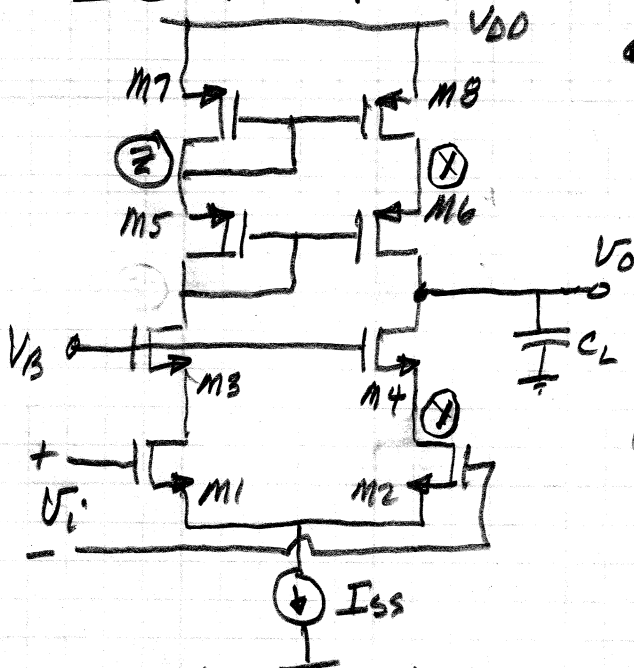 VDD
M7
M8
Z
X
M5
M6
Vo
VB
M3
M4
CL
Y
+
Vi
M1
M2
−
ISS